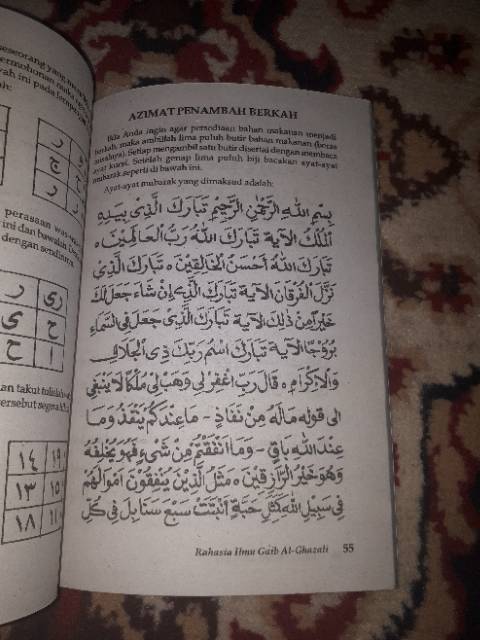 seseorang yang
ر
ج
ر
perasaan was-was
ini dan bawalah
dengan sendirinya
ر
ری
ی
ح
ح
ا
dan takut
tersebut segera
١٤
١٣
١٨
AZIMAT PENAMBAH BERKAH
Bila Anda ingin agar persediaan bahan makanan menjadi
berkah, maka ambillah lima puluh butir bahan makanan (beras
misalnya). Setiap mengambil satu butir disertai dengan membaca
ayat kursi. Setelah genap lima puluh biji bacakan ayat-ayat
mubarak seperti di bawah ini.
Ayat-ayat mubarak yang dimaksud adalah:
بِسْمِ اللهِ الرَّحْمٰنِ الرَّحِيْمِ تَبَارَكَ الَّذِيْ بِيَدِهِ
الْمُلْكُ الآية تَبَارَكَ اللهُ رَبُّ الْعَالَمِيْنَ ٥
تَبَارَكَ اللهُ اَحْسَنُ الْخَالِقِيْنَ ٥ تَبَارَكَ الَّذِيْ
نَزَّلَ الْفُرْقَانَ الآية تَبَارَكَ الَّذِيْ اِنْ شَاءَ جَعَلَ لَكَ
خَيْرًا مِنْ ذٰلِكَ الآية تَبَارَكَ الَّذِيْ جَعَلَ فِي السَّمَاءِ
بُرُوْجًا الآية تَبَارَكَ اسْمُ رَبِّكَ ذِي الْجَلَالِ
وَالْاِكْرَامِ ٥ قَالَ رَبِّ اغْفِرْ لِي وَهَبْ لِي مُلْكًا لَا يَنْبَغِي
الى قوله مَالَهُ مِنْ نَفَاذٍ - مَاعِنْدَكُمْ يَنْفَدُ وَمَا
عِنْدَ اللهِ بَاقٍ - وَمَا اَنْفَقْتُمْ مِنْ شَيْءٍ فَهُوَ يُخْلِفُهُ
وَهُوَ خَيْرُ الرَّازِقِيْنَ ٥ مَثَلُ الَّذِيْنَ يُنْفِقُوْنَ اَمْوَالَهُمْ
فِي سَبِيْلِ اللهِ كَمَثَلِ حَبَّةٍ اَنْبَتَتْ سَبْعَ سَنَابِلَ فِي كُلِّ
Rahasia Ilmu Gaib Al-Ghazali 55